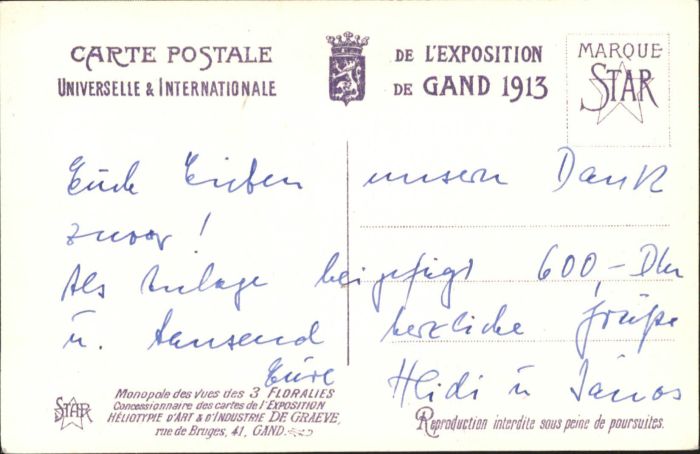 CARTE POSTALE
UNIVERSELLE & INTERNATIONALE
DE L'EXPOSITION
DE GAND 1913
MARQUE
STAR
Euch Lieben unsern Dank
zuvor!
Als Anlage beigefügt 600,- DM
u. tausend herzliche Grüße
Eure Heidi u János
STAR
Monopole des vues des 3 FLORALIES
Concessionnaire des cartes de l'EXPOSITION
HÉLIOTYPIE D'ART & D'INDUSTRIE DE GRAEVE,
rue de Bruges, 41, GAND.
Reproduction interdite sous peine de poursuites.